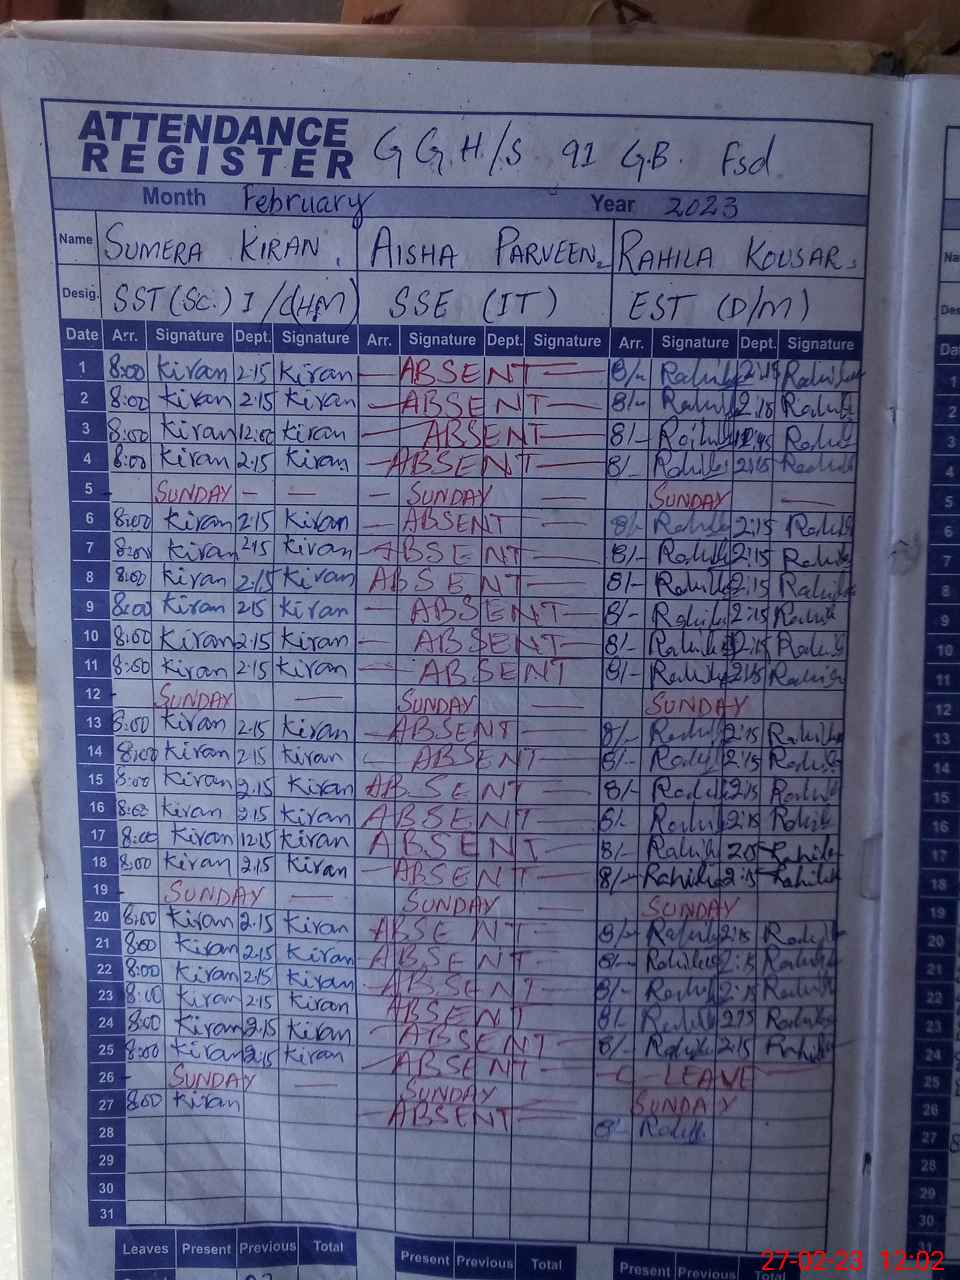 ATTENDANCE REGISTER G G.H/S 91 G.B. Fsd
Month February Year 2023
Name SUMERA KIRAN. AISHA PARVEEN. RAHILA KOUSAR.
Desig. SST (Sc.) I/C(HM) SSE (IT) EST (D/M)
Date Arr. Signature Dept. Signature Arr. Signature Dept. Signature Arr. Signature Dept. Signature
1 8:00 Kiran 2:15 Kiran — ABSENT — 8/- Rahila 2:15 Rahila
2 8:00 Kiran 2:15 Kiran — ABSENT — 8/- Rahila 2:15 Rahila
3 8:00 Kiran 12:00 Kiran — ABSENT — 8/- Rahila Rahila
4 8:00 Kiran 2:15 Kiran — ABSENT — 8/- Rahila 2:15 Rahila
5 SUNDAY — — — SUNDAY — SUNDAY —
6 8:00 Kiran 2:15 Kiran — ABSENT — 8/- Rahila 2:15 Rahila
7 8:00 Kiran 2:15 Kiran ABSENT — 8/- Rahila 2:15 Rahila
8 8:00 Kiran 2:15 Kiran ABSENT — 8/- Rahila 2:15 Rahila
9 8:00 Kiran 2:15 Kiran — ABSENT — 8/- Rahila 2:15 Rahila
10 8:00 Kiran 2:15 Kiran — ABSENT — 8/- Rahila 2:15 Rahila
11 8:00 Kiran 2:15 Kiran — ABSENT 8/- Rahila 2:15 Rahila
12 - SUNDAY — SUNDAY — SUNDAY
13 8:00 Kiran 2:15 Kiran — ABSENT — 8/- Rahila 2:15 Rahila
14 8:00 Kiran 2:15 Kiran ABSENT — 8/- Rahila 2:15 Rahila
15 8:00 Kiran 2:15 Kiran ABSENT — 8/- Rahila 2:15 Rahila
16 8:00 Kiran 2:15 Kiran ABSENT — 8/- Rahila 2:15 Rahila
17 8:00 Kiran 12:15 Kiran ABSENT — 8/- Rahila 2:15 Rahila
18 8:00 Kiran 2:15 Kiran — ABSENT — 8/- Rahila 2:15 Rahila
19 - SUNDAY — SUNDAY — SUNDAY
20 8:00 Kiran 2:15 Kiran ABSENT — 8/- Rahila 2:15 Rahila
21 8:00 Kiran 2:15 Kiran ABSENT — 8/- Rahila 2:15 Rahila
22 8:00 Kiran 2:15 Kiran ABSENT — 8/- Rahila 2:15 Rahila
23 8:00 Kiran 2:15 Kiran ABSENT 8/- Rahila 2:15 Rahila
24 8:00 Kiran 2:15 Kiran — ABSENT — 8/- Rahila 2:15 Rahila
25 8:00 Kiran 2:15 Kiran — ABSENT — LEAVE —
26 - SUNDAY — SUNDAY — SUNDAY
27 8:00 Kiran — ABSENT — 8/- Rahila
28
29
30
31
Leaves Present Previous Total Present Previous Total Present Previous Total
27-02-23 12:02